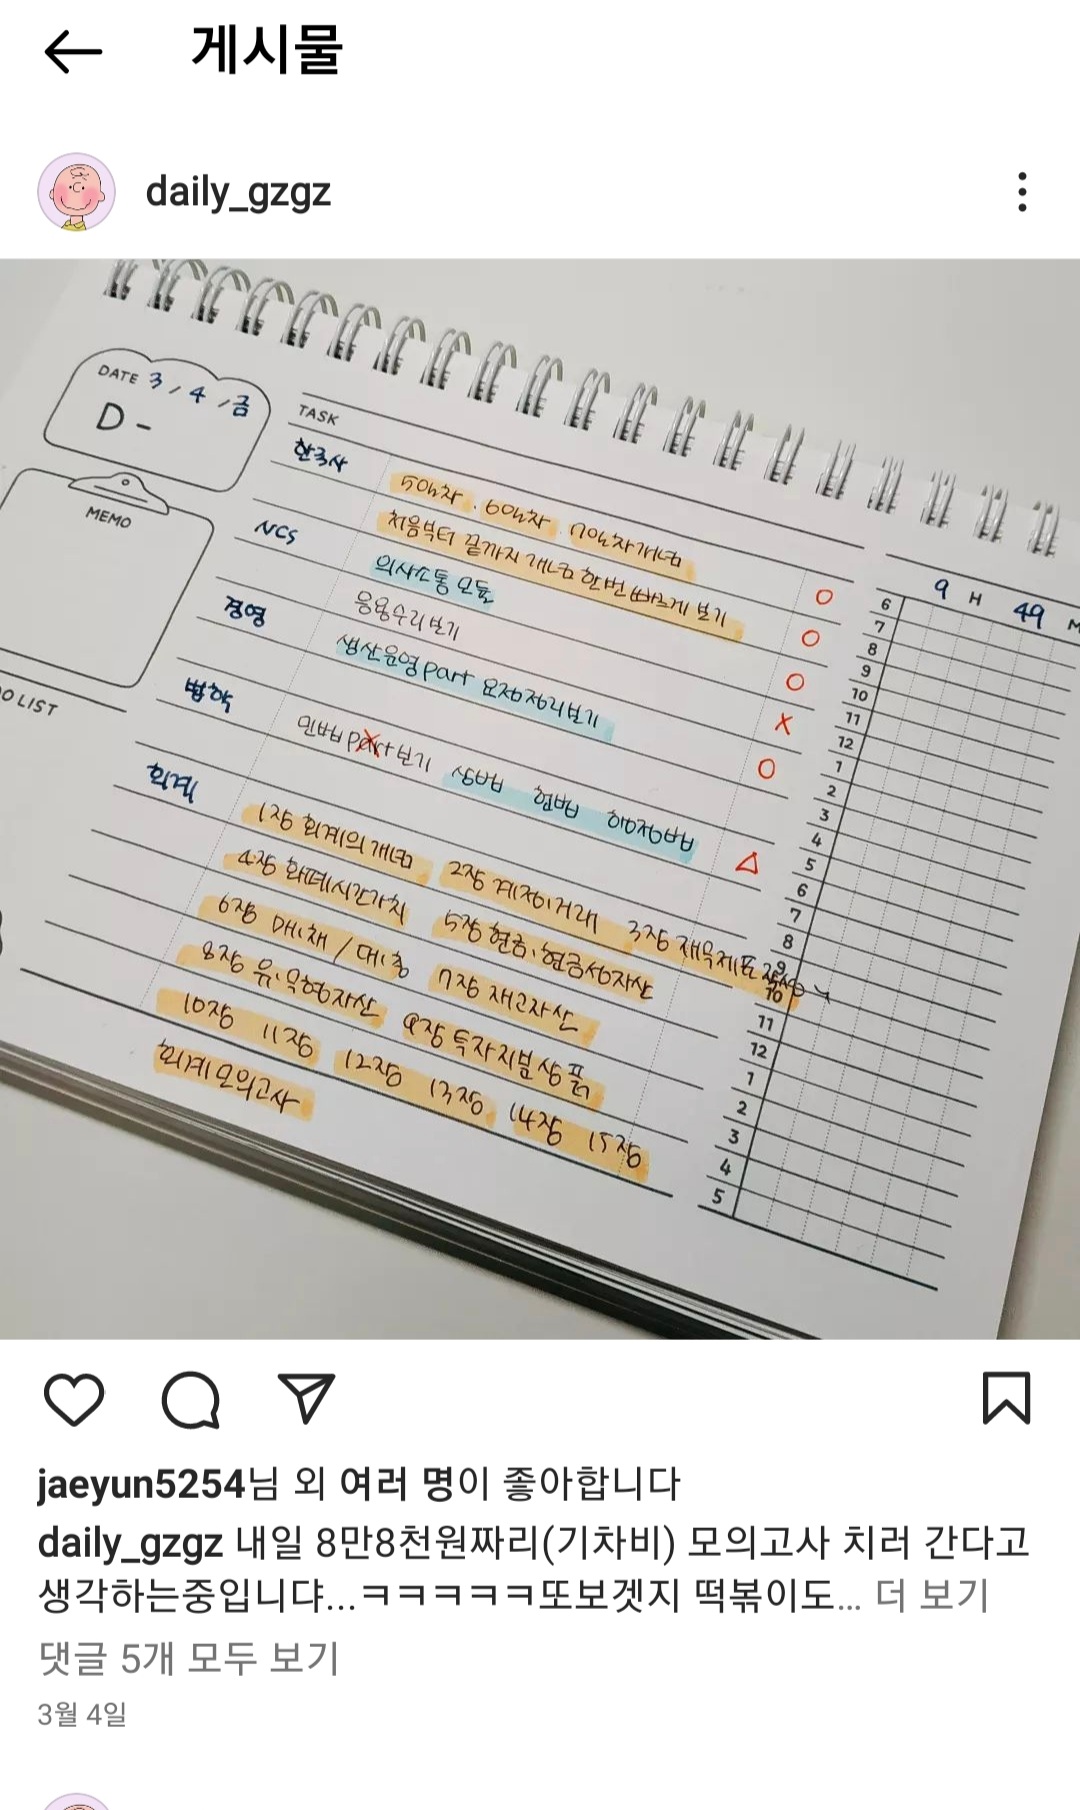 게시물
daily_gzgz
DATE 3 / 4 / 금
D -
MEMO
O LIST
TASK
한국사
50n차 . 60n차 . 70n차 개념
처음부터 끝까지 개념 한번 빠르게 보기 O
NCS
의사소통 모듈 O
응용수리 보기 X
경영
생산운영 part 요점정리 보기 O
법학
민법 part 보기 상법 헌법 행정법 △
회계
1장 회계의 개념 2장 계정, 거래 3장 재무제표
4장 화폐시간가치 5장 현금, 현금성자산
6장 매,채 / 대,충 7장 재고자산
8장 유·무형자산 9장 투자지분상품
10장 11장 12장 13장 14장 15장
회계 모의고사
9 H 49 M
6
7
8
9
10
11
12
1
2
3
4
5
6
7
8
9
10
11
12
1
2
3
4
5
jaeyun5254님 외 여러 명이 좋아합니다
daily_gzgz 내일 8만8천원짜리(기차비) 모의고사 치러 간다고
생각하는중입니댜...ㅋㅋㅋㅋㅋ또보겟지 떡볶이도... 더 보기
댓글 5개 모두 보기
3월 4일